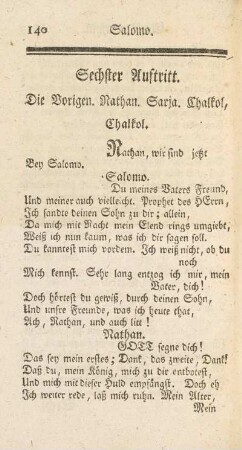 140 Salomo.
Sechster Auftritt.
Die Vorigen. Nathan. Sarja. Chalkol,
Chalkol.
Nathan, wir sind jetzt
Bey Salomo.
Salomo.
Du meines Vaters Freund,
Und meiner auch vielleicht. Prophet des HErrn,
Ich sandte deinen Sohn zu dir; allein,
Da mich mit Nacht mein Elend rings umgiebt,
Weiß ich nun kaum, was ich dir sagen soll.
Du kanntest mich vordem. Ich weiß nicht, ob du
noch
Mich kennst. Sehr lang entzog ich mir, mein
Vater, dich!
Doch hörtest du gewiß, durch deinen Sohn,
Und unsre Freunde, was ich heute that,
Ach, Nathan, und auch litt!
Nathan.
GOTT segne dich!
Das sey mein erstes; Dank, das zweite, Dank!
Daß du, mein König, mich zu dir entbotest,
Und mich mit dieser Huld empfängst. Doch eh
Ich weiter rede, laß mich ruhn. Mein Alter,
Mein